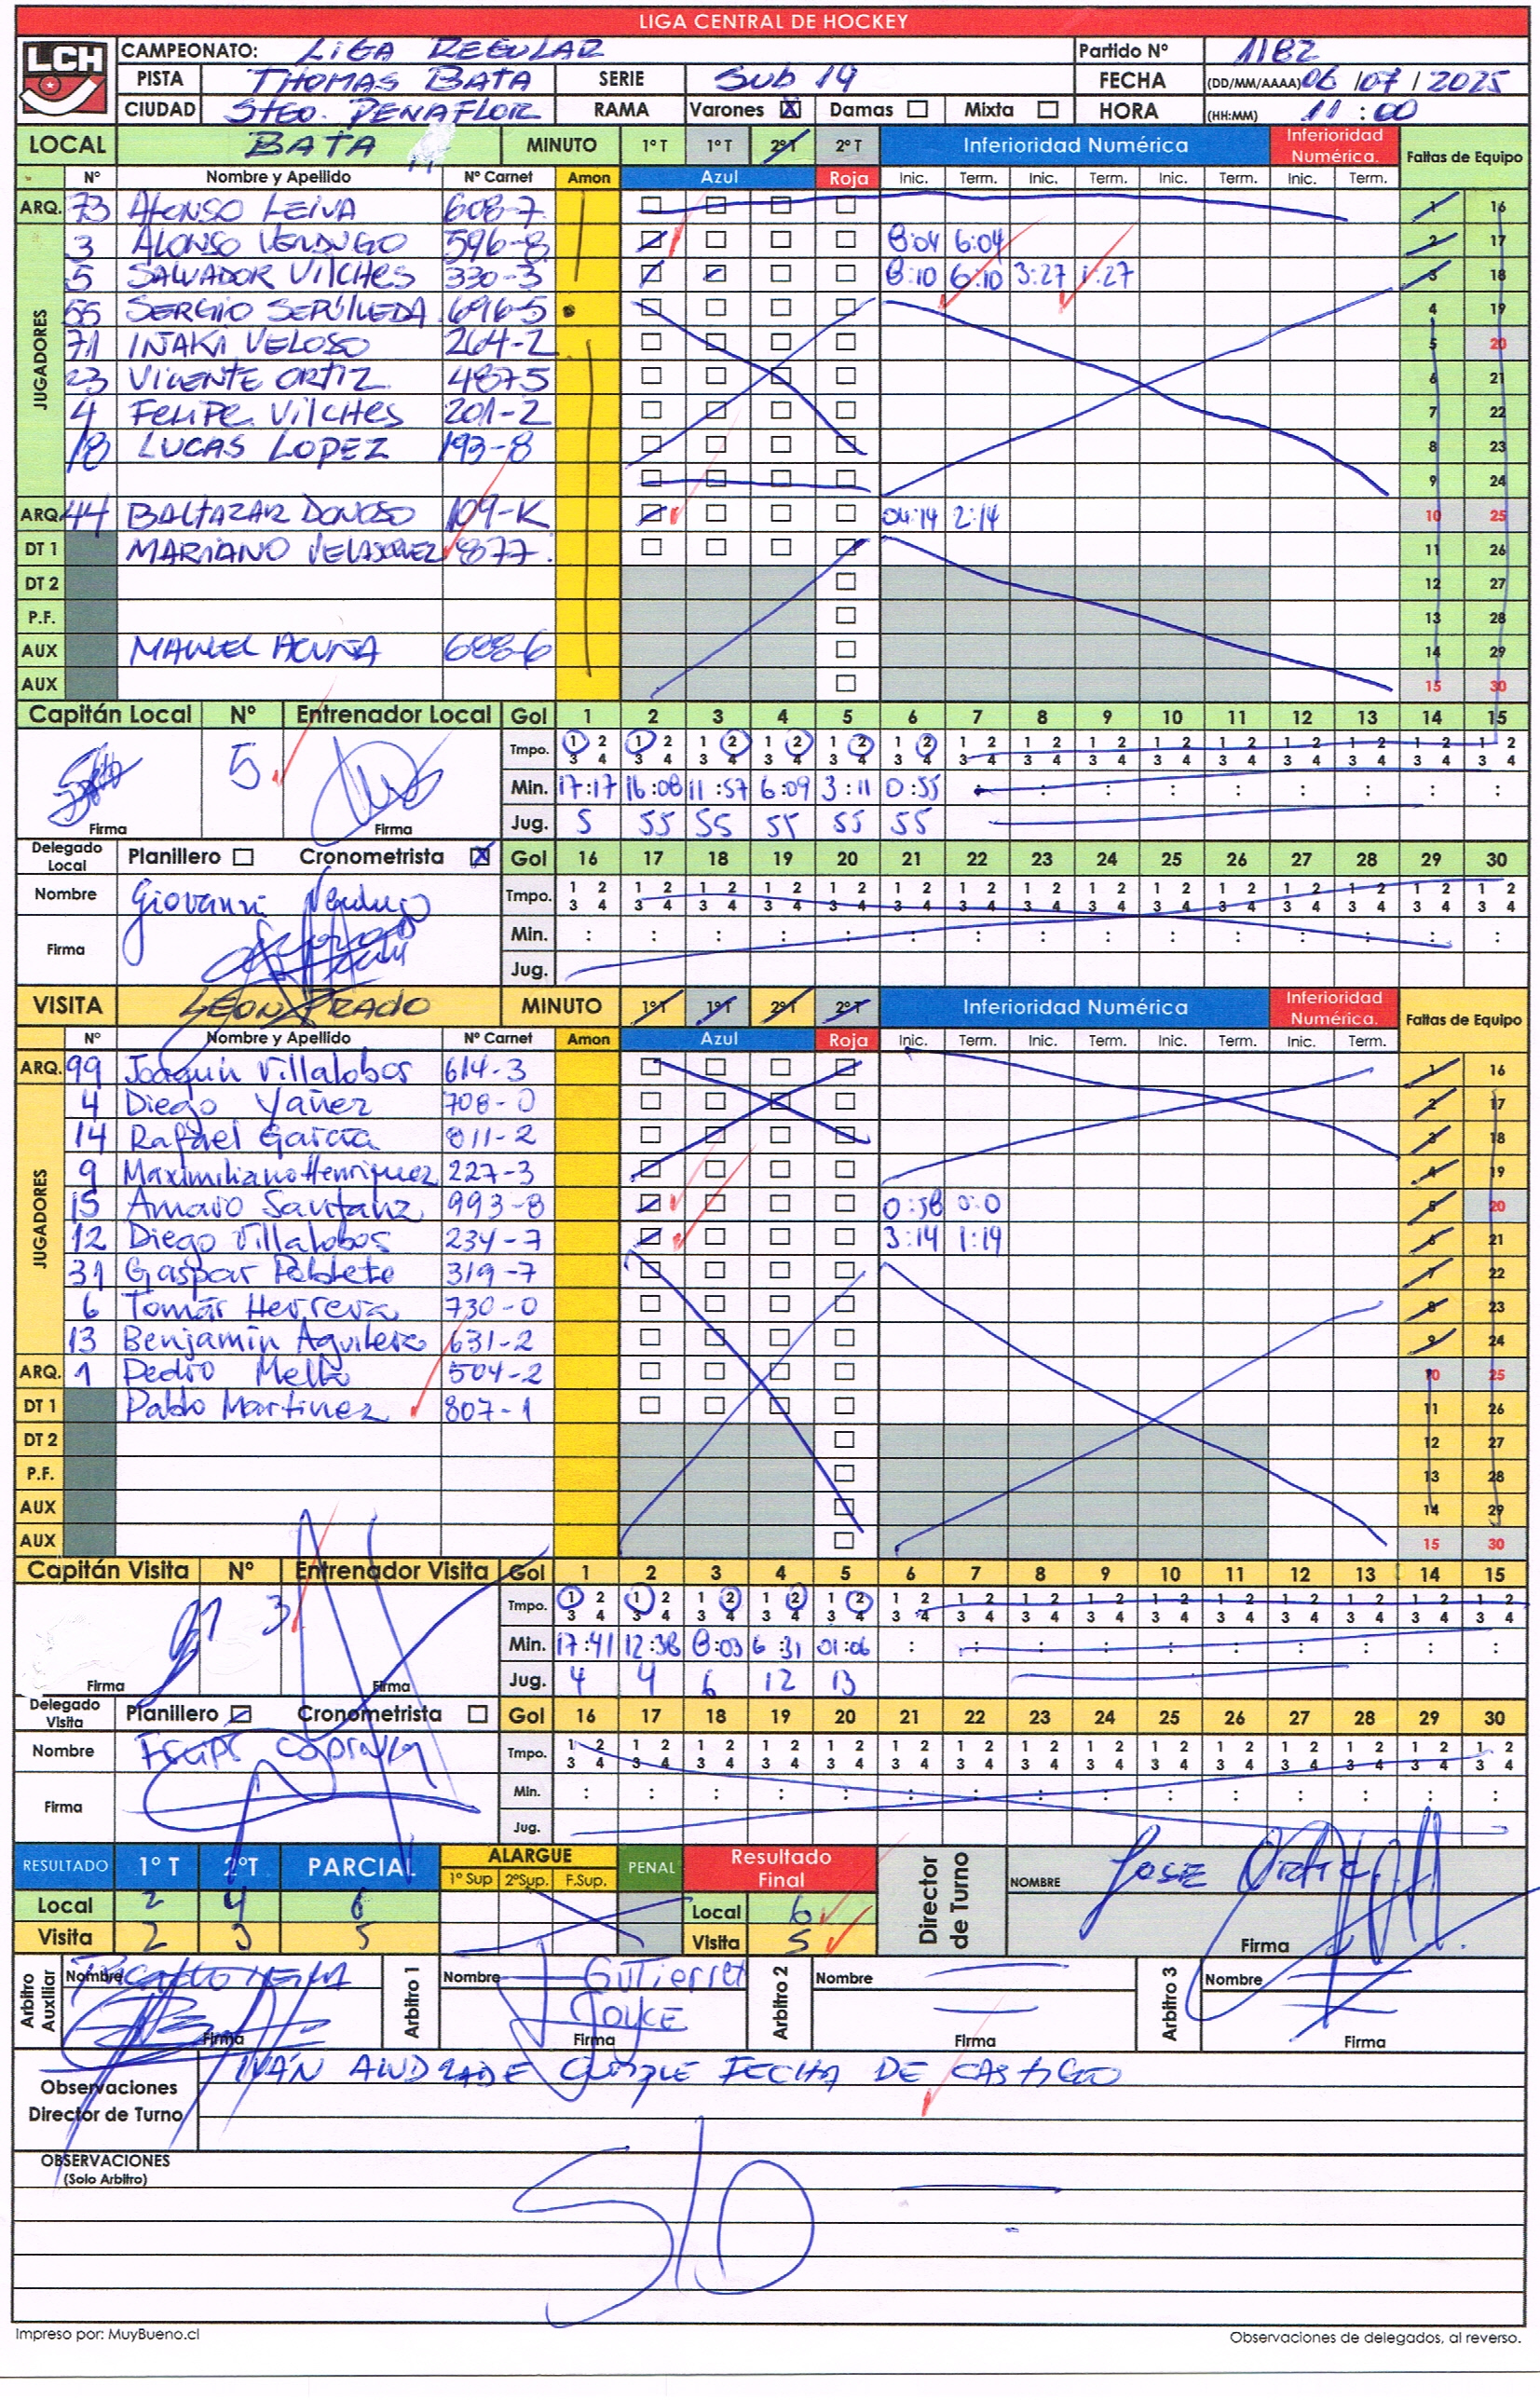 LIGA CENTRAL DE HOCKEY
LCH
CAMPEONATO: LIGA REGULAR Partido Nº 1182
PISTA THOMAS BATA SERIE SUB 19 FECHA (DD/MM/AAAA) 06 / 07 / 2025
CIUDAD STGO. PEÑAFLOR RAMA Varones X Damas Mixta HORA (HH:MM) 11 : 00
LOCAL BATA MINUTO 1º T 1º T 2º T 2º T Inferioridad Numérica Inferioridad Numérica. Faltas de Equipo
Nº Nombre y Apellido Nº Carnet Amon Azul Roja Inic. Term. Inic. Term. Inic. Term. Inic. Term.
ARQ. 73 ALONSO LEIVA 608-7 1 16
JUGADORES
3 ALONSO VERDUGO 596-8 8:04 6:04 2 17
5 SALVADOR VILCHES 330-3 8:10 6:10 3:27 1:27 3 18
55 SERGIO SEPÚLVEDA 696-5 4 19
71 IÑAKI VELOSO 264-2 5 20
23 VICENTE ORTIZ 487-5 6 21
4 FELIPE VILCHES 201-2 7 22
18 LUCAS LOPEZ 193-8 8 23
9 24
ARQ. 44 BALTAZAR DONOSO 109-K 04:14 2:14 10 25
DT 1 MARIANO VELASQUEZ 877 11 26
DT 2 12 27
P.F. 13 28
AUX MANUEL ACUÑA 688-6 14 29
AUX 15 30
Capitán Local Nº Entrenador Local Gol 1 2 3 4 5 6 7 8 9 10 11 12 13 14 15
5 Tmpo. 1 2 1 2 1 2 1 2 1 2 1 2 1 2 1 2 1 2 1 2 1 2 1 2 1 2 1 2 1 2
3 4 3 4 3 4 3 4 3 4 3 4 3 4 3 4 3 4 3 4 3 4 3 4 3 4 3 4 3 4
Min. 17:17 16:08 11:57 6:09 3:11 0:55 : : : : : : : : :
Firma Firma Jug. 5 55 55 55 55 55
Delegado Local Planillero Cronometrista X Gol 16 17 18 19 20 21 22 23 24 25 26 27 28 29 30
Nombre Giovanni Verdugo Tmpo. 1 2 1 2 1 2 1 2 1 2 1 2 1 2 1 2 1 2 1 2 1 2 1 2 1 2 1 2 1 2
3 4 3 4 3 4 3 4 3 4 3 4 3 4 3 4 3 4 3 4 3 4 3 4 3 4 3 4 3 4
Firma Min. : : : : : : : : : : : : : : :
Jug.
VISITA LEON PRADO MINUTO 1º T 1º T 2º T 2º T Inferioridad Numérica Inferioridad Numérica. Faltas de Equipo
Nº Nombre y Apellido Nº Carnet Amon Azul Roja Inic. Term. Inic. Term. Inic. Term. Inic. Term.
ARQ. 99 Joaquin Villalobos 614-3 1 16
JUGADORES
4 Diego Yañez 708-0 2 17
14 Rafael Garcia 811-2 3 18
9 Maximiliano Henriquez 227-3 4 19
15 Amaro Santanz 993-8 0:58 0:0 5 20
12 Diego Villalobos 234-7 3:14 1:19 6 21
31 Gaspar Poblete 319-7 7 22
6 Tomár Herrera 730-0 8 23
13 Benjamín Aguilera 631-2 9 24
ARQ. 1 Pedro Mella 504-2 10 25
DT 1 Pablo Martinez 807-1 11 26
DT 2 12 27
P.F. 13 28
AUX 14 29
AUX 15 30
Capitán Visita Nº Entrenador Visita Gol 1 2 3 4 5 6 7 8 9 10 11 12 13 14 15
Tmpo. 1 2 1 2 1 2 1 2 1 2 1 2 1 2 1 2 1 2 1 2 1 2 1 2 1 2 1 2 1 2
3 4 3 4 3 4 3 4 3 4 3 4 3 4 3 4 3 4 3 4 3 4 3 4 3 4 3 4 3 4
Min. 17:41 12:38 8:03 6 31 01:06 : : : : : : : : : :
Firma Firma Jug. 4 4 6 12 13
Delegado Visita Planillero Cronometrista Gol 16 17 18 19 20 21 22 23 24 25 26 27 28 29 30
Nombre Tmpo. 1 2 1 2 1 2 1 2 1 2 1 2 1 2 1 2 1 2 1 2 1 2 1 2 1 2 1 2 1 2
3 4 3 4 3 4 3 4 3 4 3 4 3 4 3 4 3 4 3 4 3 4 3 4 3 4 3 4 3 4
Firma Min. : : : : : : : : : : : : : : :
Jug.
RESULTADO 1º T 2ºT PARCIAL ALARGUE 1º Sup 2ºSup. F.Sup. PENAL Resultado Final Director de Turno NOMBRE JOSE ORTIZ
Local 2 4 6 Local 6
Visita 2 3 5 Visita 5 Firma
Arbitro Auxiliar Nombre Arbitro 1 Nombre Gutierrez Arbitro 2 Nombre Arbitro 3 Nombre
JOYCE
Firma Firma Firma Firma
Observaciones Director de Turno IVÁN ANDRADE CUMPLE FECHA DE CASTIGO
OBSERVACIONES
(Solo Arbitro)
S/O
Impreso por: MuyBueno.cl Observaciones de delegados, al reverso.